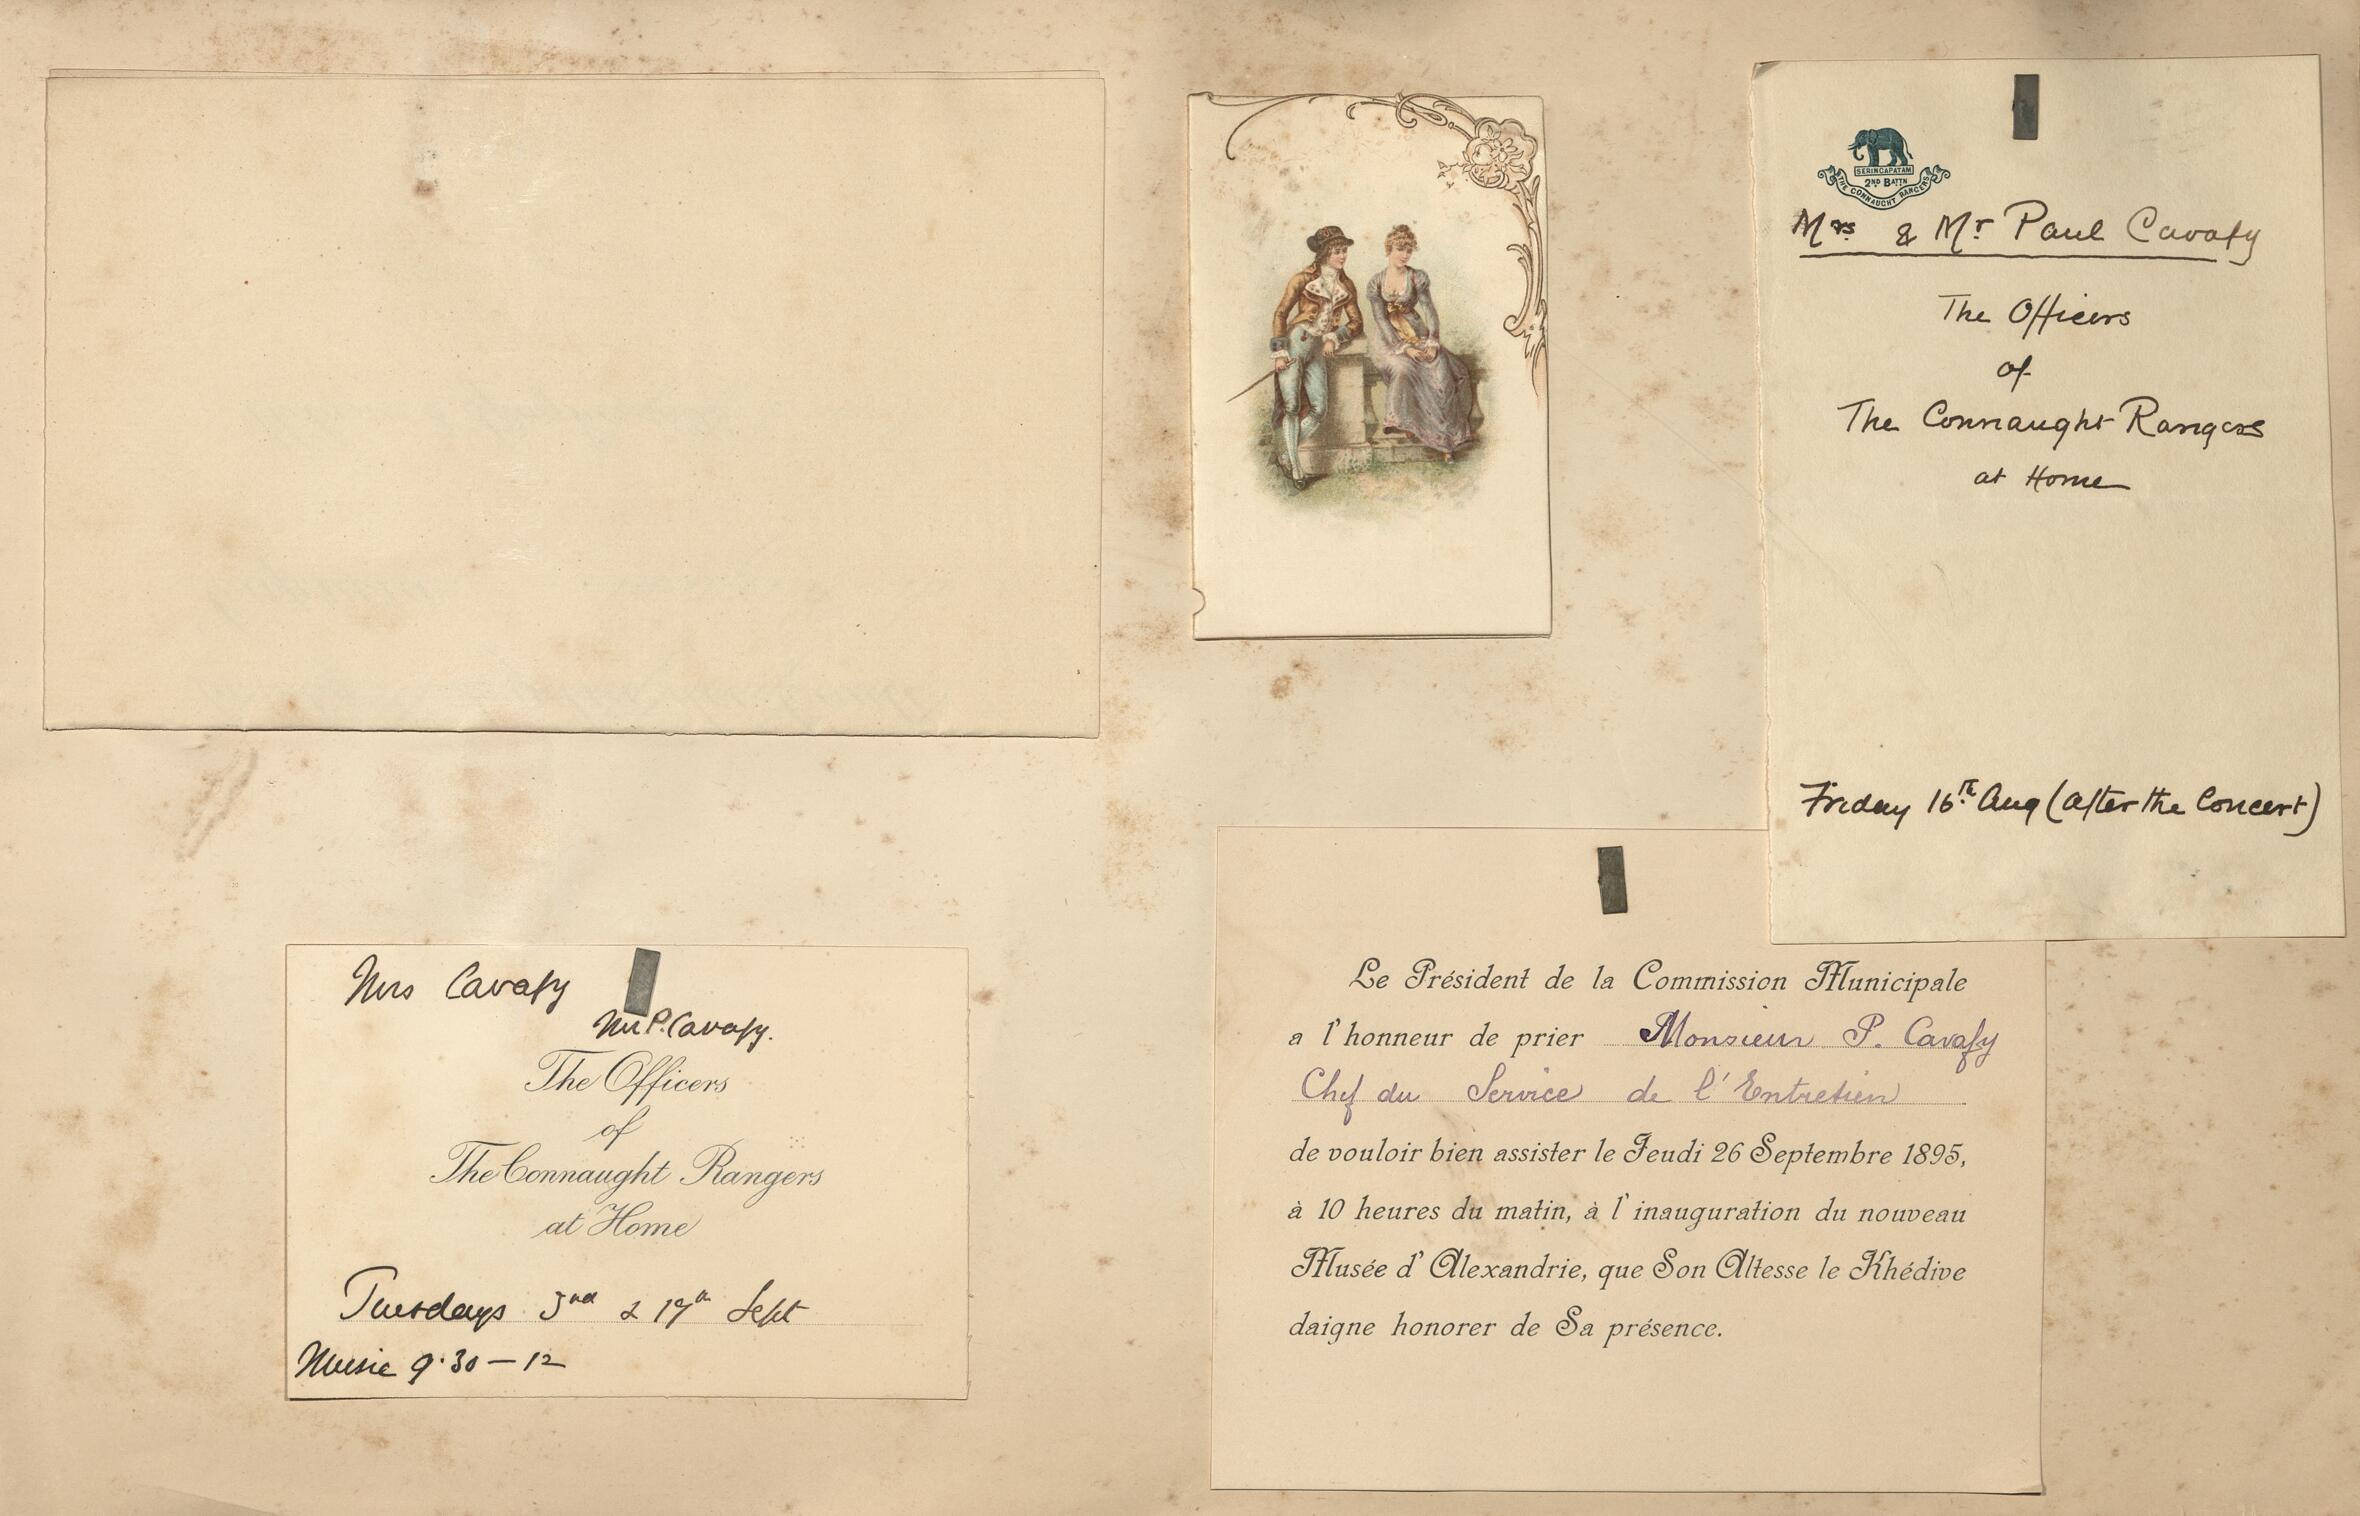 SERINGAPATAM
2ND BATTN
THE CONNAUGHT RANGERS
Mrs & Mr Paul Cavafy
The Officers
of
The Connaught Rangers
at Home
Friday 16th Aug (after the Concert)
Mrs Cavafy
Mr P. Cavafy.
The Officers
of
The Connaught Rangers
at Home
Tuesdays 3rd & 17th Sept
Music 9.30 — 12
Le Président de la Commission Municipale
a l'honneur de prier Monsieur P. Cavafy
Chef du Service de l'Entretien
de vouloir bien assister le Jeudi 26 Septembre 1895,
à 10 heures du matin, à l'inauguration du nouveau
Musée d'Alexandrie, que Son Altesse le Khédive
daigne honorer de Sa présence.